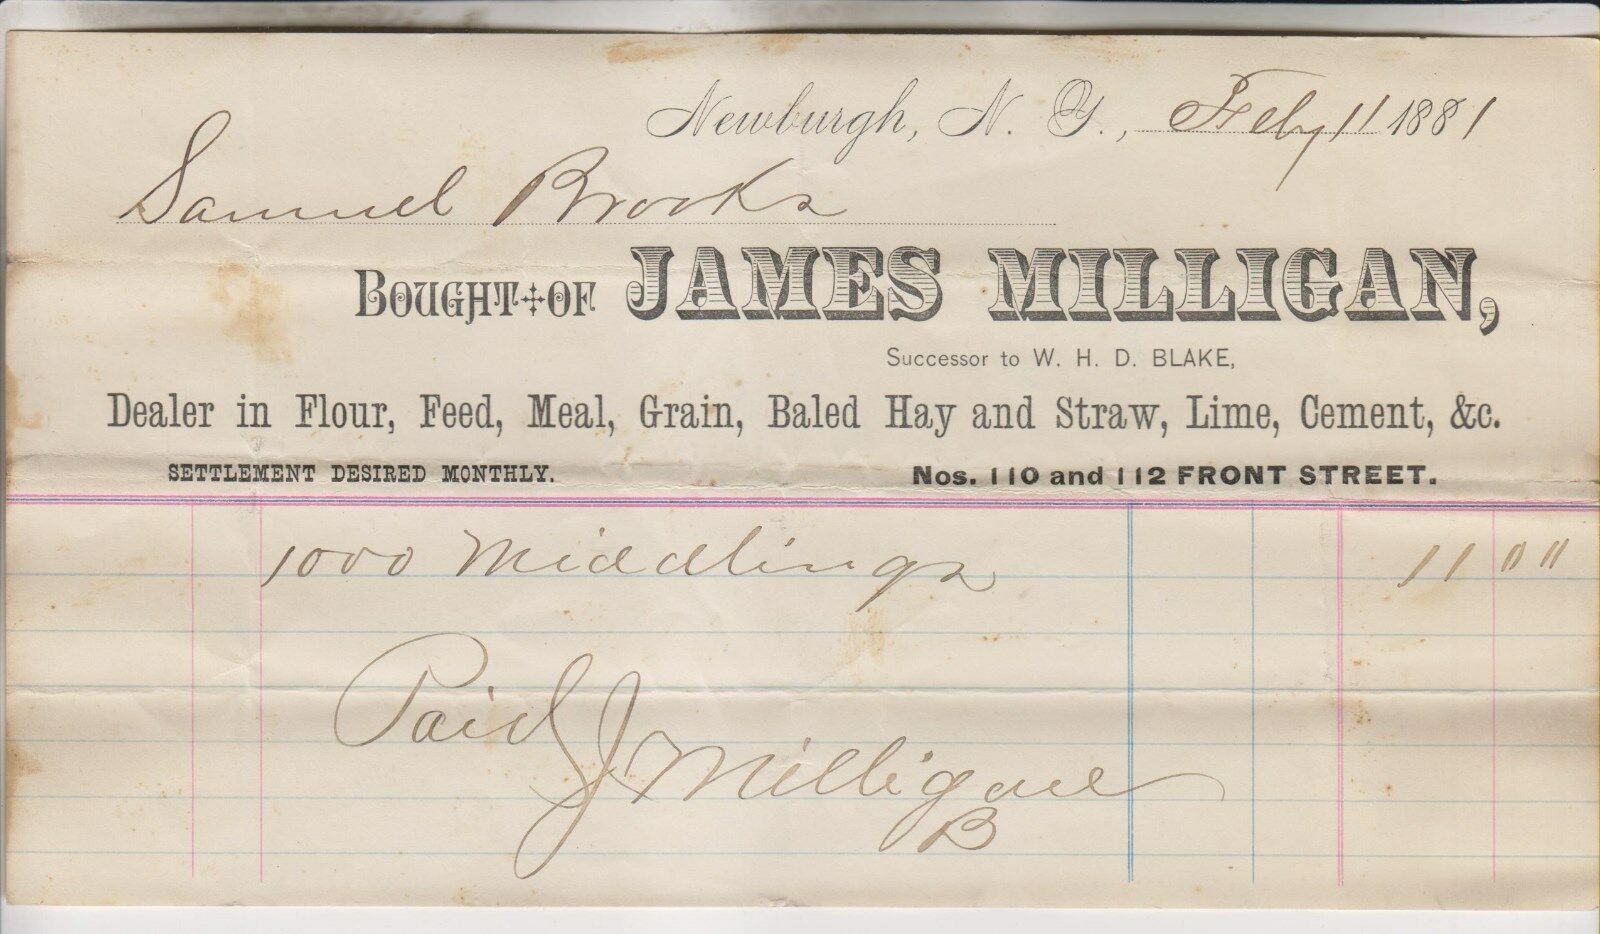 Newburgh, N. Y., Feby 11 1881
Samuel Brooks
BOUGHT OF JAMES MILLIGAN,
Successor to W. H. D. BLAKE,
Dealer in Flour, Feed, Meal, Grain, Baled Hay and Straw, Lime, Cement, &c.
SETTLEMENT DESIRED MONTHLY. Nos. 110 and 112 FRONT STREET.
1000 Middlings 11 " "
Paid
J Milligan
B